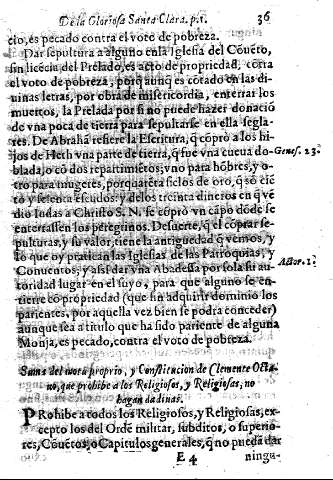 De la Gloriosa Santa Clara. p.t. 36
cio, es pecado contra el voto de pobreza.
Dar sepultura a alguno enla Iglesia del Cōuēto,
sin licēcia del Prelado, es acto de propriedad, cōtra
el voto de pobreza, porq̃ aunq̃ es cōtado en las di
uinas letras, por obra de misericordia, enterrar los
muertos, la Prelada por si no puede hazer donaciō
de vna poca de tierra para sepultarse en ella segla-
res. De Abrahā refiere la Escritura, q̃ cōprò a los hi-
jos de Heth vna parte de tierra, q̃ fue vna cueua do-
blada, o cō dos repartimiētos; vno para hōbres, y o-
tro para mugeres, por quarēta siclos de oro, q̃ sō ciē
to y setenta escudos: y de los treinta dineros en q̃ vē
dio Iudas a Christo S. N. se cōprò vn cāpo dōde se
enterrassen los peregrinos. De suerte, q̃ el cōprar se-
pulturas, y su valor, tiene la antiguedad q̃ vemos, y
lo que oy pratican las Iglesias de las Parroquias, y
Conuentos; y assi dar vna Abadessa por sola su au-
toridad lugar en el suyo, para que alguno se en-
tierre cō propriedad (que sin adquirir dominio los
parientes, por aquella vez bien se podra conceder)
aunque sea a titulo que ha sido pariente de alguna
Monja, es pecado, contra el voto de pobreza.
Genes. 23.
Actor. 1.
Suma del motu proprio, y Constitucion de Clemente Octa-
uo, que prohibe a los Religiosos, y Religiosas, no
hagan dadiuas.
PRohibe a todos los Religiosos, y Religiosas, ex-
cepto los del Ordē militar, subditos, o superio-
res, Cōuētos, o Capitulos generales, q̃ no puedā dar
E 4 ningu-